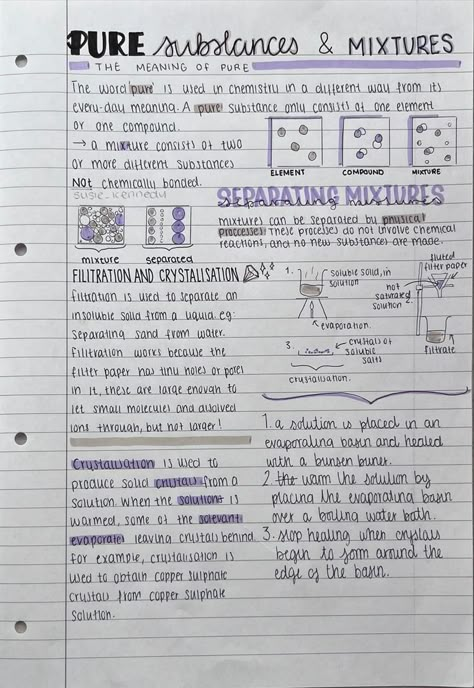 PURE substances & MIXTURES
THE MEANING OF PURE
The word 'pure' is used in chemistry in a different way from its
every-day meaning. A pure substance only consists of one element
or one compound.
→ a mixture consists of two
or more different substances
NOT chemically bonded.
ELEMENT
COMPOUND
MIXTURE
susie_kennedy
mixture
separated
SEPARATING MIXTURES
separating mixtures
mixtures can be separated by physical
processes. These processes do not involve chemical
reactions, and no new substances are made.
FILITRATION AND CRYSTALISATION
filtration is used to separate an
insoluble solid from a liquid. eg:
separating sand from water.
Filtration works because the
filter paper has tinu holes or pores
in it, these are large enough to
let small molecules and disolved
ions through, but not larger!
1.
soluble solid, in
solution
evaporation.
fluted
filter paper
not
saturated
solution
2.
filtrate
3.
crystals of
soluble
salts
crystalisation.
Crystalisation is used to
produce solid crystals from a
solution. When the solution is
warmed, some of the solevent
evaporates leaving crystals behind.
for example, crystalisation is
used to obtain copper sulphate
crystals from copper sulphate
solution.
1. a solution is placed in an
evaporating basin and heated
with a bunsen buner.
2. the warm the solution by
placing the evaporating basin
over a boiling water bath.
3. stop heating when crystals
begin to form around the
edge of the basin.